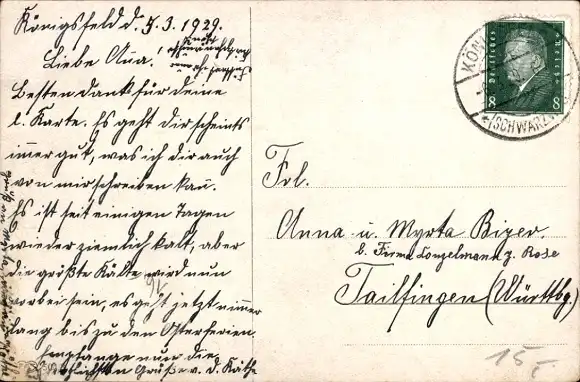 Königsfeld d. 5.3.1929.
Liebe Anna!
Besten Dank für deine
l. Karte. Es geht dir scheints
immer gut, was ich dir auch
von mir schreiben kann.
Es ist seit einigen Tagen
wieder ziemlich kalt, aber
die größte Kälte wird nun
vorbei sein, es geht jetzt nimmer
lang bis zu den Osterferien.
Empfange nun die
herzlichsten Grüße v. d. Käthe
Deutsches Reich
8 8
KÖN
(SCHWARZW
Frl.
Anna u. Myrta Bizer.
b. Firma Conzelmann z. Rose
Tailfingen (Württbg.)
15,-